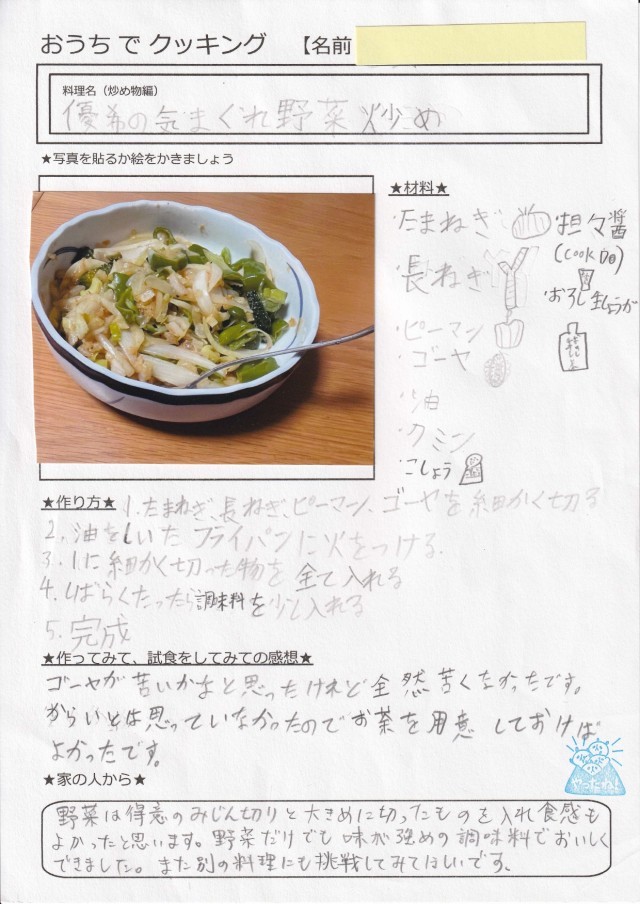 おうち で クッキング 【名前
料理名（炒め物編）
優希の気まぐれ野菜炒め
★写真を貼るか絵をかきましょう
★材料★
・たまねぎ
・長ねぎ
・ピーマン
・ゴーヤ
・油
・クミン
・こしょう
・担々醤
(COOK DO)
・おろし生しょうが
★作り方★ 1.たまねぎ、長ねぎ、ピーマン、ゴーヤを細かく切る
2.油をしいたフライパンに火をつける.
3.1に細かく切った物を全て入れる
4.しばらくたったら調味料を少し入れる
5.完成
★作ってみて、試食をしてみての感想★
ゴーヤが苦いかなと思ったけれど全然苦くなかったです。
からいとは思っていなかったのでお茶を用意しておけば
よかったです。
★家の人から★
野菜は得意のみじん切りと大きめに切ったものを入れ食感も
よかったと思います。野菜だけでも味が強めの調味料でおいしく
できました。また別の料理にも挑戦してみてほしいです、